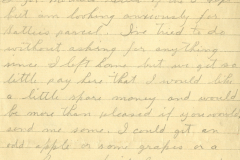 but am looking anxiously for
Hatties parcel. I've tried to do
without asking for anything
since I left home but we get so
little pay here that I would like
a little spare money and would
be more than pleased if you would
send me some. I could get an
odd apple or some grapes or a